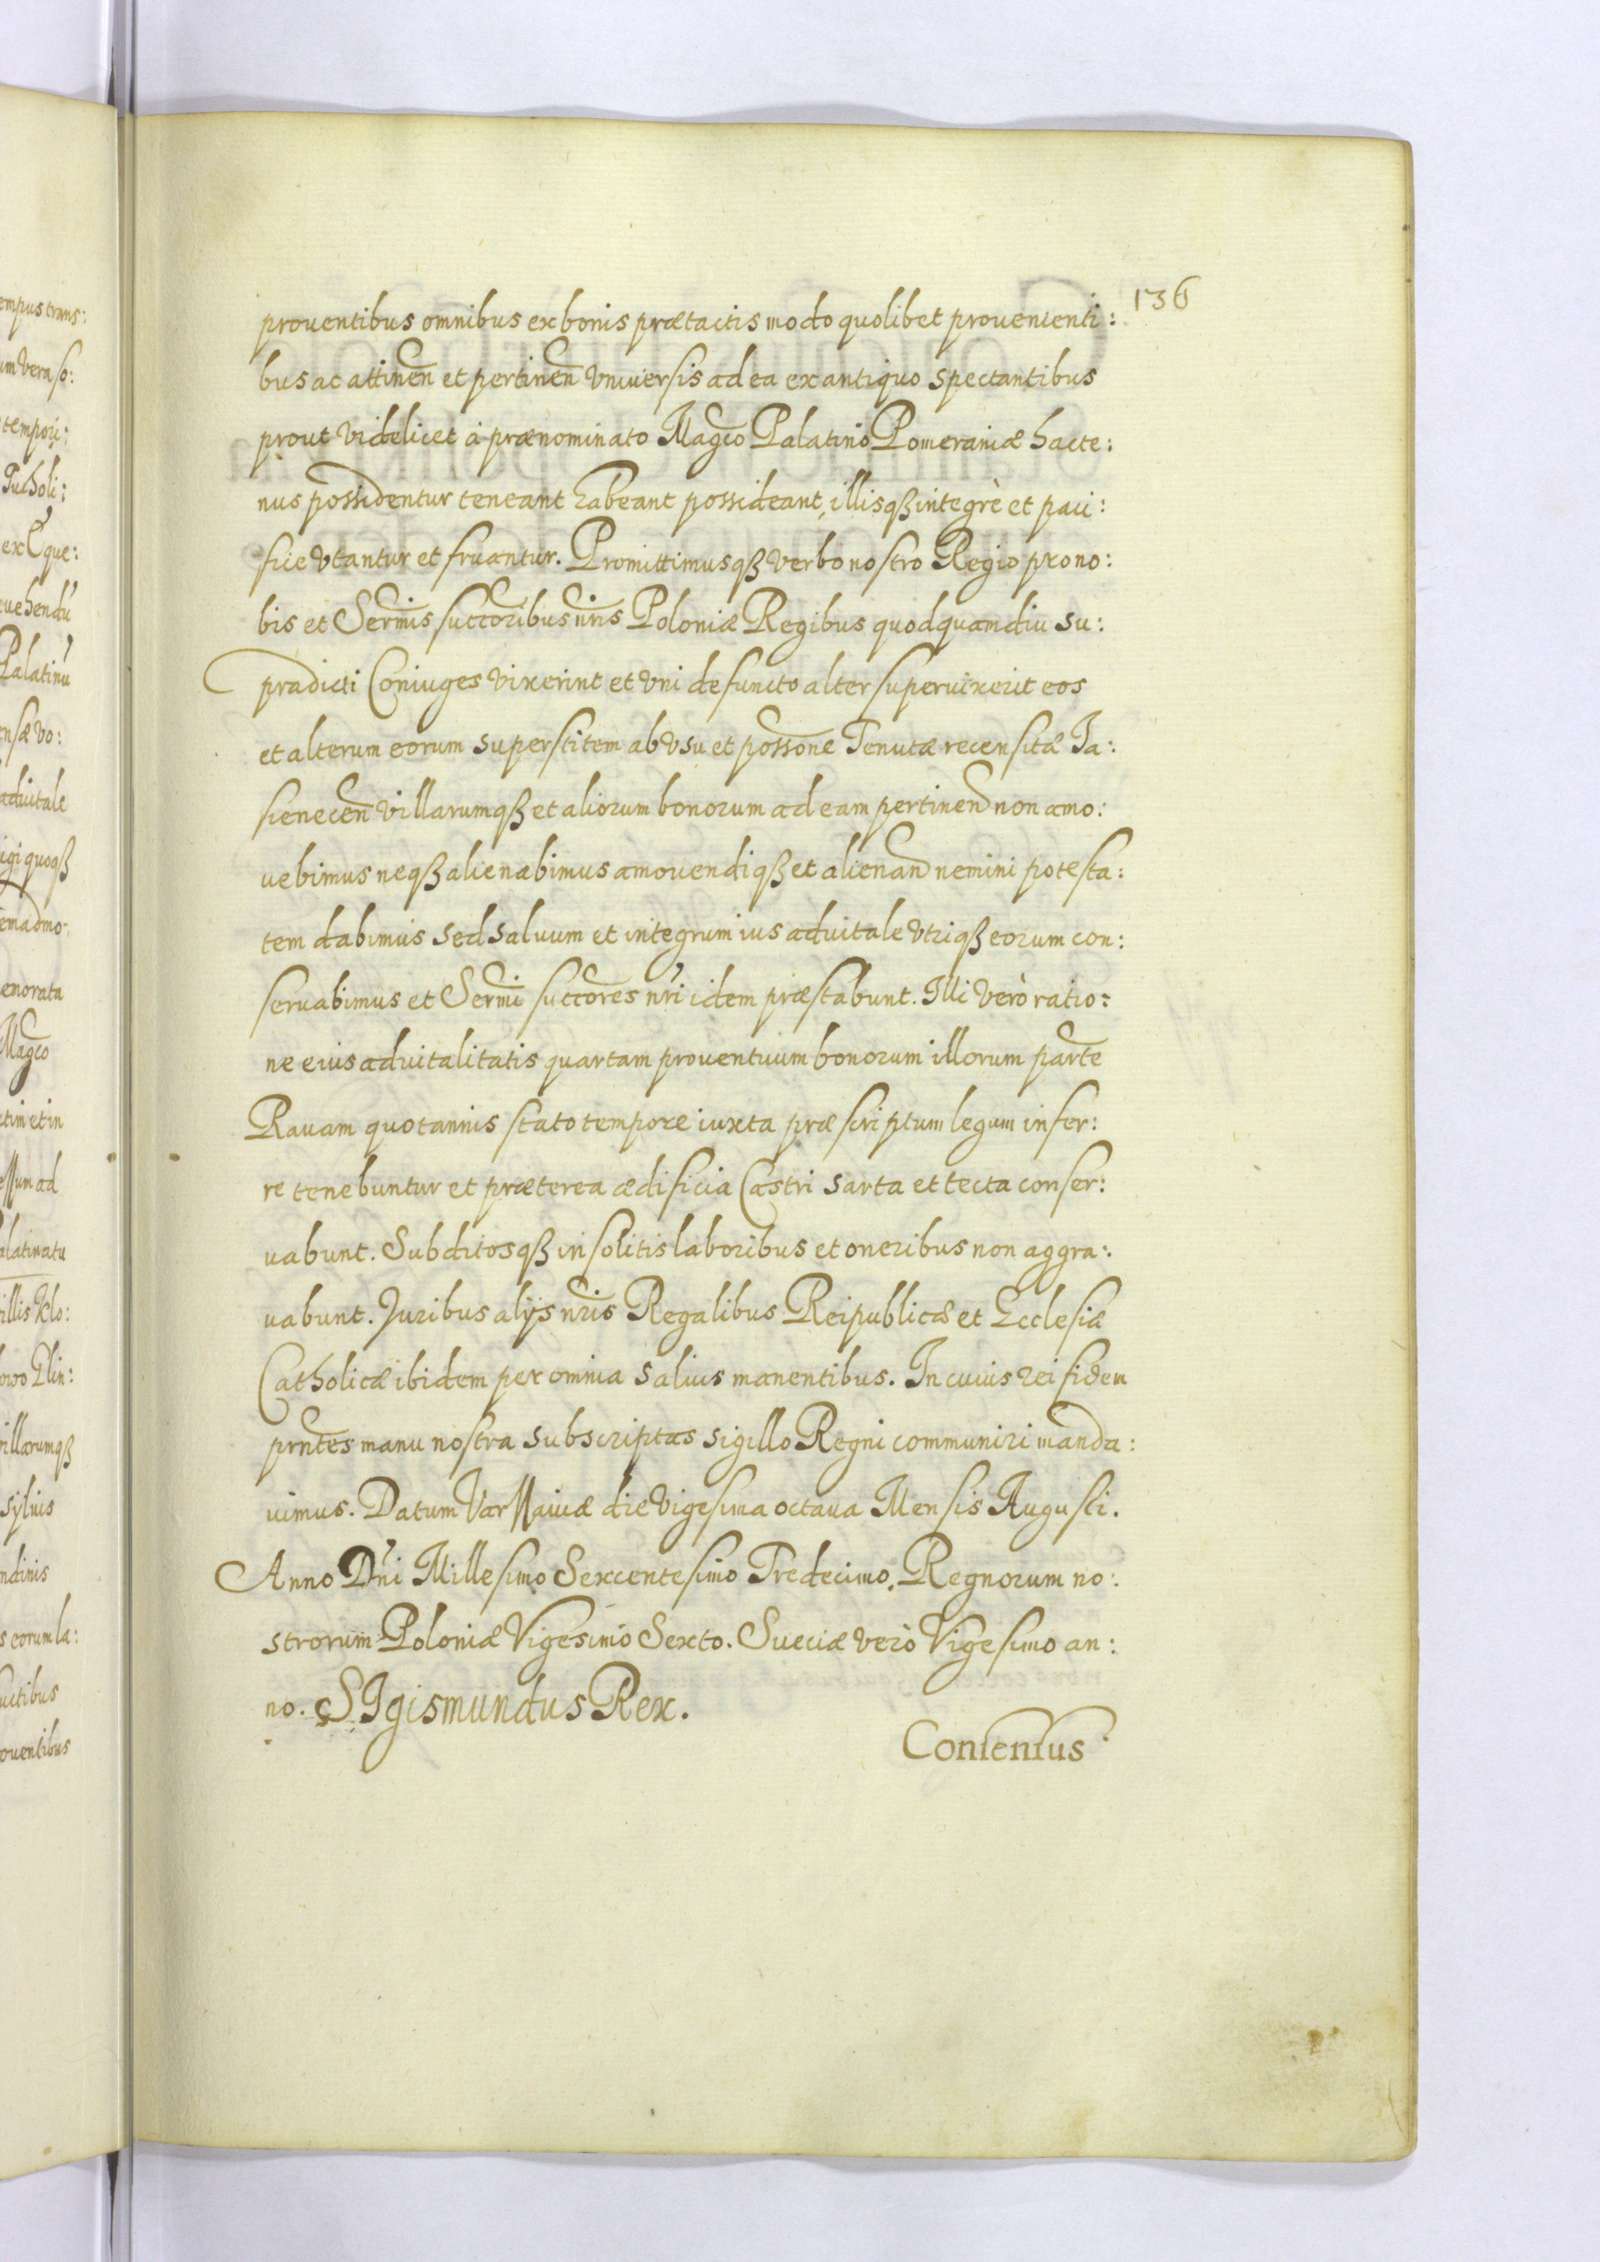 136
prouentibus omnibus ex bonis prætactis modo quolibet prouenienti:
bus ac attinen et pertinen vniuersis ad ea ex antiquo spectantibus
prout videlicet à prænominato Magco Palatino Pomeraniæ hacte:
nus possidentur teneant habeant possideant, illisqß integrè et paci:
fice vtantur et fruantur. Promittimusqß verbo nostro Regio pro no:
bis et Sermis succoribus nris Poloniæ Regibus quod quamdiu su:
pradicti Coniuges vixerint et vni defuncto alter superuixerit eos
et alterum eorum superstitem ab vsu et possone Tenutæ recensitæ Ja:
sienecen villarumqß et aliorum bonorum ad eam pertinen non amo:
uebimus neqß alienabimus amouendiqß et alienan nemini potesta:
tem dabimus sed saluum et integrum ius aduitale vtriqß eorum con:
seruabimus et Sermi succores nri idem præstabunt. Illi verò ratio:
ne eius aduitalitatis quartam prouentuum bonorum illorum parte
Rauam quotannis stato tempore iuxta præscriptum legum infer:
re tenebuntur et præterea ædificia Castri sarta et tecta conser:
uabunt. Subditosqß insolitis laboribus et oneribus non aggra:
uabunt. Juribus alijs nris Regalibus Reipublicæ et Ecclesiæ
Catholicæ ibidem per omnia saluis manentibus. In cuius rei fidem
prntes manu nostra subscriptas sigillo Regni communiri manda:
uimus. Datum Varssauiæ die vigesima octaua Mensis Augusti.
Anno Dni Millesimo Sexcentesimo Tredecimo. Regnorum no:
strorum Poloniæ Vigesimo Sexto. Sueciæ verò Vigesimo an:
no. SIgismundus Rex.
Consensus